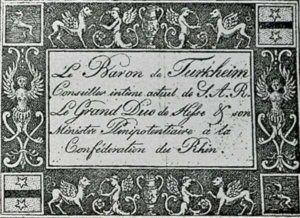 Le Baron de Turkheim
Conseiller intime actuel de S. A. R.
Le Grand Duc de Hesse & son
Ministre Plénipotentiaire à la
Confédération du Rhin.